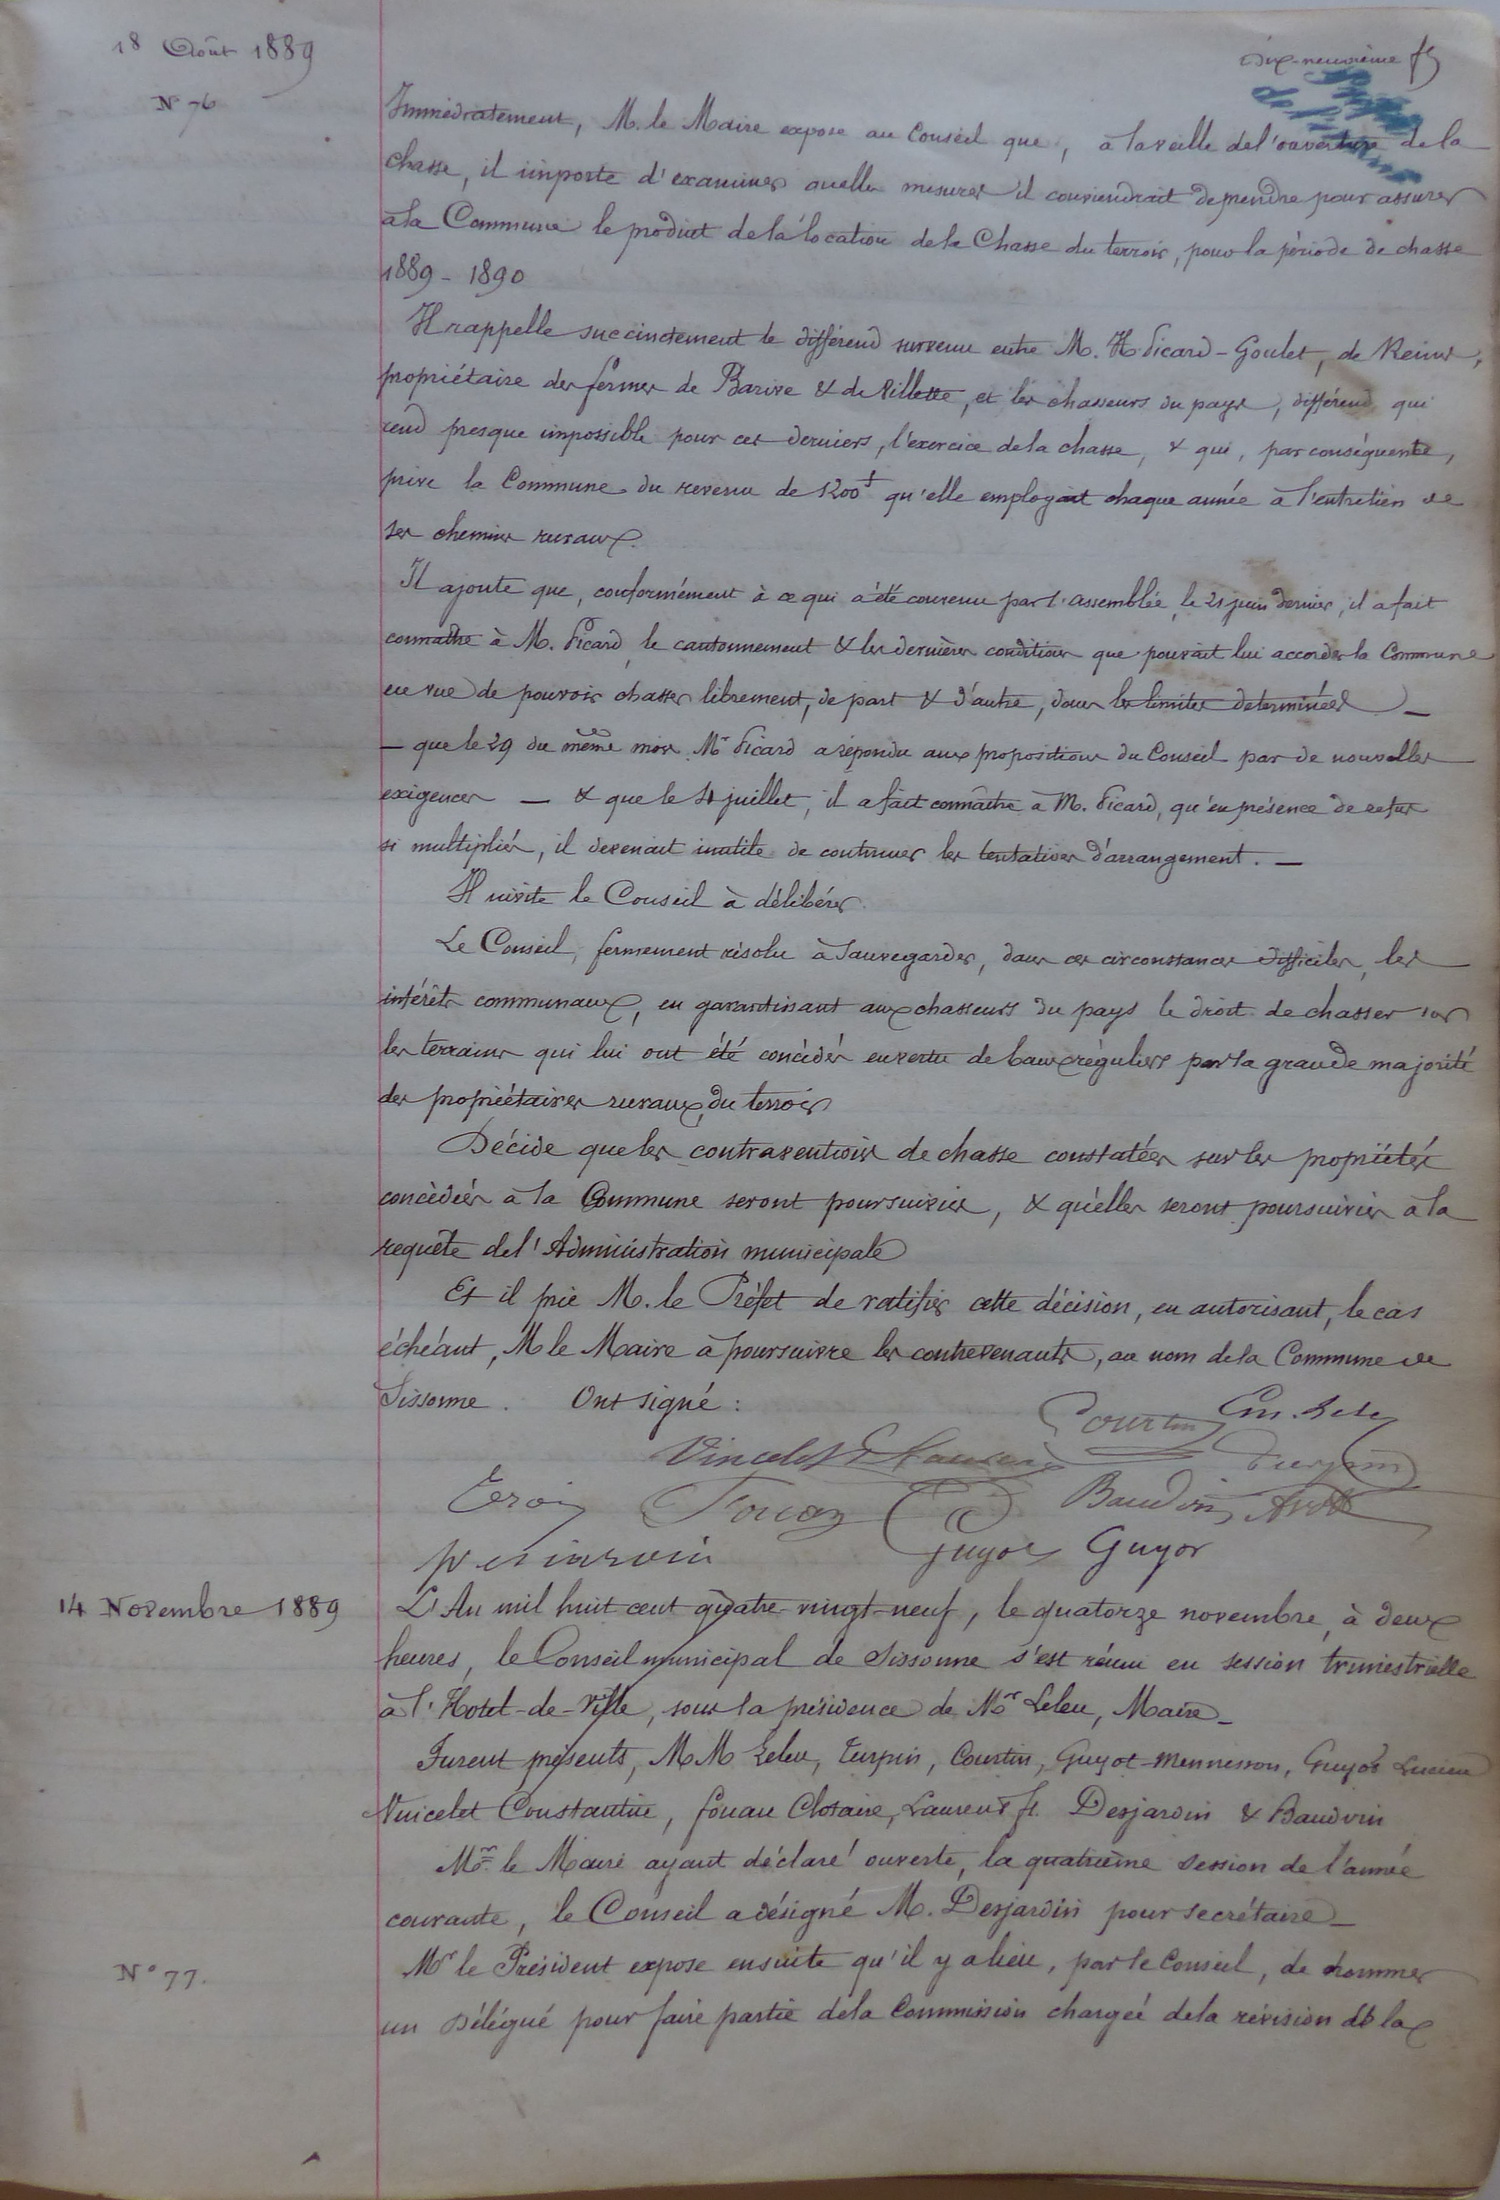 18 Août 1889
dix-neuvième ff
N° 76
Immédiatement, M. le Maire expose au Conseil que, à la veille de l'ouverture de la
chasse, il importe d'examiner quelles mesures il conviendrait de prendre pour assurer
à la Commune le produit de la location de la Chasse du terroir, pour la période de chasse
1889 - 1890
Il rappelle succinctement le différend survenu entre M. H. Picard-Goulet, de Reims,
propriétaire des fermes de Barive & de Villette, et les chasseurs du pays, différend qui
rend presque impossible pour ces derniers, l'exercice de la chasse, & qui, par conséquent,
prive la Commune du revenu de 1200f qu'elle employait chaque année à l'entretien de
ses chemins ruraux.
Il ajoute que, conformément à ce qui a été convenu par l'assemblée, le 21 juin dernier, il a fait
connaître à M. Picard, le cantonnement & les dernières conditions que pouvait lui accorder la Commune
en vue de pouvoir chasser librement, de part & d'autre, dans les limites déterminées —
— que le 29 du même mois Mr Picard a répondu aux propositions du Conseil par de nouvelles
exigences — & que le juillet, il a fait connaître à M. Picard, qu'en présence de refus
si multipliés, il devenait inutile de continuer les tentatives d'arrangement. —
Il invite le Conseil à délibérer.
Le Conseil, fermement résolu à sauvegarder, dans ces circonstances difficiles, les
intérêts communaux, en garantissant aux chasseurs du pays le droit de chasser sur
les terrains qui lui ont été concédés en vertu de baux réguliers par la grande majorité
des propriétaires ruraux du terroir
Décide que les contraventions de chasse constatées sur les propriétés
concédées à la Commune seront poursuivies, & qu'elles seront poursuivies à la
requête de l'Administration municipale
Et il prie M. le Préfet de ratifier cette décision, en autorisant, le cas
échéant, M le Maire à poursuivre les contrevenants, au nom de la Commune de
Sissonne. Ont signé :
Courtin Em. Leleu
Vincelet Laurent Turpin
Fouan Baudvin
Guyot Guyot
14 Novembre 1889
L'An mil huit cent quatre-vingt-neuf, le quatorze novembre, à deux
heures, le Conseil municipal de Sissonne s'est réuni en session trimestrielle
à l'Hotel-de-Ville, sous la présidence de Mr Leleu, Maire_
Furent présents, MM Leleu, Turpin, Courtin, Guyot-Mennesson, Guyot Lucien
Vuicelet Constantin, fouan Clotaire, Laurent ft. Desjardin & Baudvin
Mr le Maire ayant déclaré ouverte, la quatrième session de l'année
courante, le Conseil a désigné M. Desjardin pour secrétaire_
N° 77.
Mr le Président expose ensuite qu'il y a lieu, par le Conseil, de nommer
un délégué pour faire partie de la Commission chargée de la révision de la